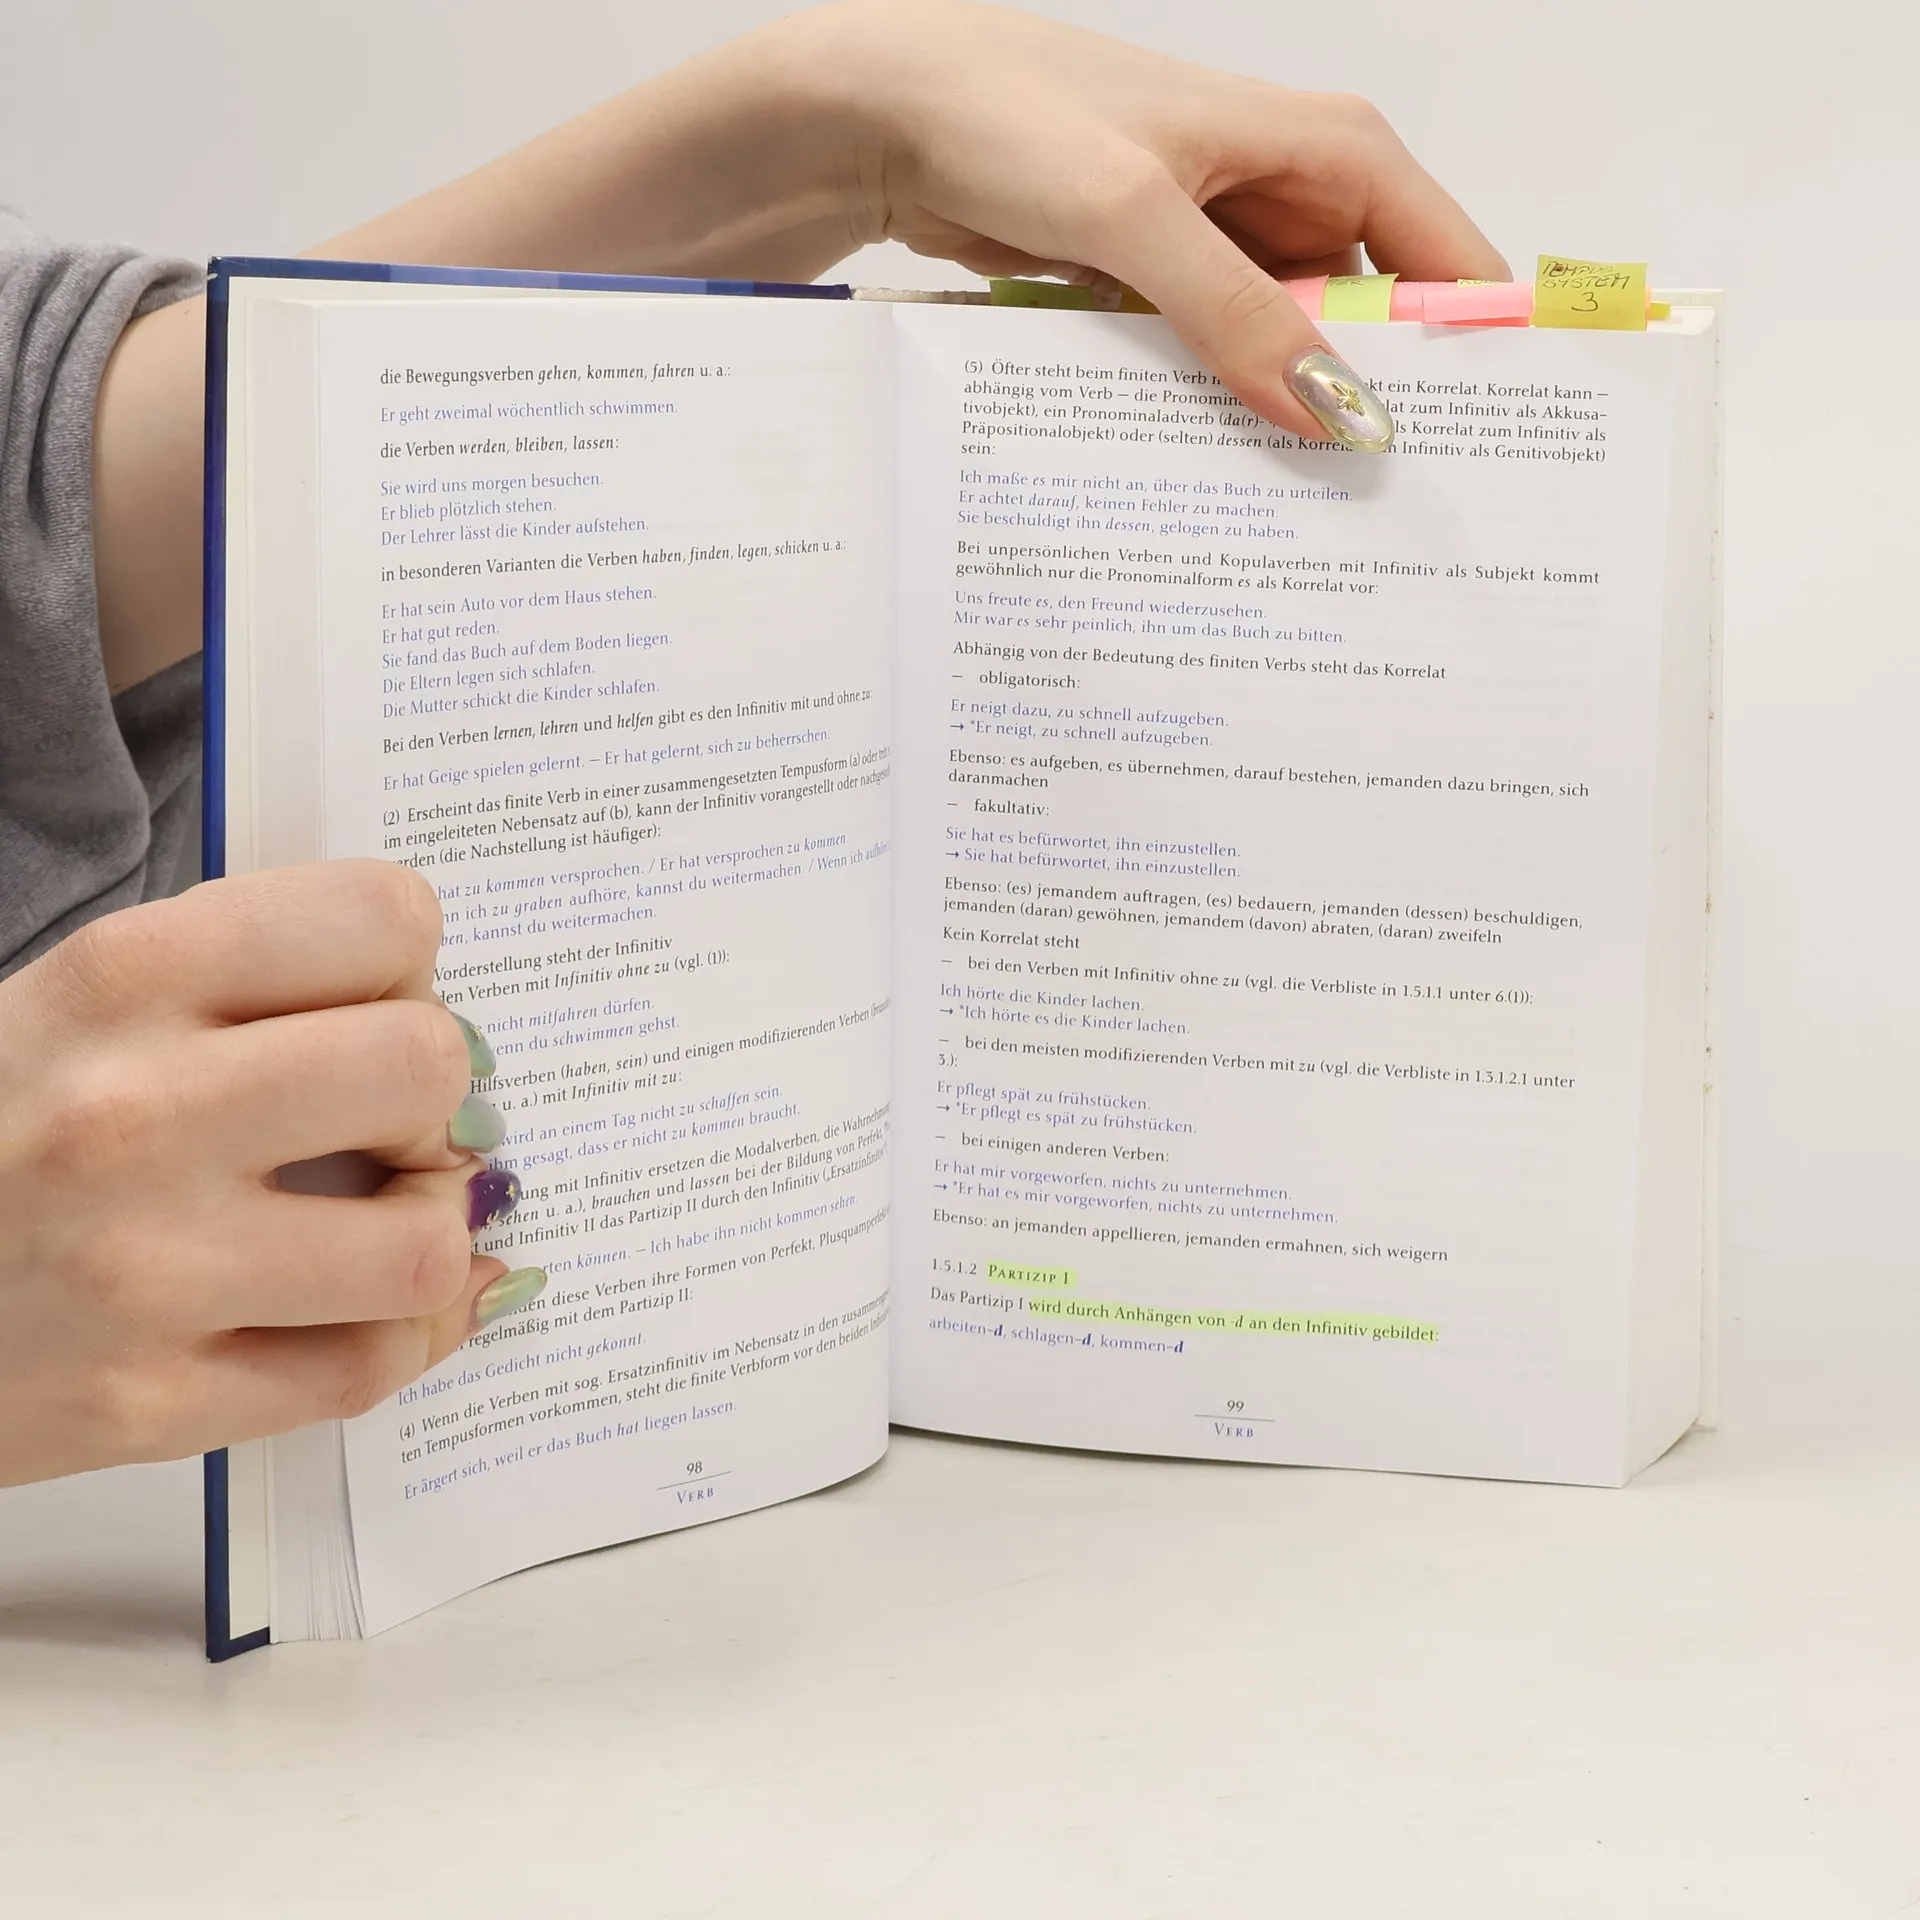 TEMPUS
SYSTEM
3
die Bewegungsverben gehen, kommen, fahren u. a.:
Er geht zweimal wöchentlich schwimmen.
die Verben werden, bleiben, lassen:
Sie wird uns morgen besuchen.
Er blieb plötzlich stehen.
Der Lehrer lässt die Kinder aufstehen.
in besonderen Varianten die Verben haben, finden, legen, schicken u. a.:
Er hat sein Auto vor dem Haus stehen.
Er hat gut reden.
Sie fand das Buch auf dem Boden liegen.
Die Eltern legen sich schlafen.
Die Mutter schickt die Kinder schlafen.
Bei den Verben lernen, lehren und helfen gibt es den Infinitiv mit und ohne zu:
Er hat Geige spielen gelernt. – Er hat gelernt, sich zu beherrschen.
(2) Erscheint das finite Verb in einer zusammengesetzten Tempusform (a) oder
im eingeleiteten Nebensatz auf (b), kann der Infinitiv vorangestellt oder
erden (die Nachstellung ist häufiger):
hat zu kommen versprochen. / Er hat versprochen zu kommen.
nn ich zu graben aufhöre, kannst du weitermachen. / Wenn ich
ben, kannst du weitermachen.
Vorderstellung steht der Infinitiv
den Verben mit Infinitiv ohne zu (vgl. (1)):
nicht mitfahren dürfen.
enn du schwimmen gehst.
Hilfsverben (haben, sein) und einigen modifizierenden Verben
u. a.) mit Infinitiv mit zu:
wird an einem Tag nicht zu schaffen sein.
ihm gesagt, dass er nicht zu kommen braucht.
ung mit Infinitiv ersetzen die Modalverben, die
sehen u. a.), brauchen und lassen bei der Bildung von Perfekt,
t und Infinitiv II das Partizip II durch den Infinitiv („Ersatzinfinitiv“)
rten können. – Ich habe ihn nicht kommen sehen.
den diese Verben ihre Formen von Perfekt, Plusquamperfekt
regelmäßig mit dem Partizip II:
Ich habe das Gedicht nicht gekonnt.
(4) Wenn die Verben mit sog. Ersatzinfinitiv im Nebensatz in den
ten Tempusformen vorkommen, steht die finite Verbform vor den beiden
Er ärgert sich, weil er das Buch hat liegen lassen.
98
VERB
(5) Öfter steht beim finiten Verb kt ein Korrelat. Korrelat kann –
abhängig vom Verb – die Pronomin lat zum Infinitiv als Akkusa-
tivobjekt), ein Pronominaladverb (da(r)- ls Korrelat zum Infinitiv als
Präpositionalobjekt) oder (selten) dessen (als Korrel n Infinitiv als Genitivobjekt)
sein:
Ich maße es mir nicht an, über das Buch zu urteilen.
Er achtet darauf, keinen Fehler zu machen.
Sie beschuldigt ihn dessen, gelogen zu haben.
Bei unpersönlichen Verben und Kopulaverben mit Infinitiv als Subjekt kommt
gewöhnlich nur die Pronominalform es als Korrelat vor:
Uns freute es, den Freund wiederzusehen.
Mir war es sehr peinlich, ihn um das Buch zu bitten.
Abhängig von der Bedeutung des finiten Verbs steht das Korrelat
– obligatorisch:
Er neigt dazu, zu schnell aufzugeben.
→ *Er neigt, zu schnell aufzugeben.
Ebenso: es aufgeben, es übernehmen, darauf bestehen, jemanden dazu bringen, sich
daranmachen
– fakultativ:
Sie hat es befürwortet, ihn einzustellen.
→ Sie hat befürwortet, ihn einzustellen.
Ebenso: (es) jemandem auftragen, (es) bedauern, jemanden (dessen) beschuldigen,
jemanden (daran) gewöhnen, jemandem (davon) abraten, (daran) zweifeln
Kein Korrelat steht
– bei den Verben mit Infinitiv ohne zu (vgl. die Verbliste in 1.5.1.1 unter 6.(1)):
Ich hörte die Kinder lachen.
→ *Ich hörte es die Kinder lachen.
– bei den meisten modifizierenden Verben mit zu (vgl. die Verbliste in 1.3.1.2.1 unter
3.):
Er pflegt spät zu frühstücken.
→ *Er pflegt es spät zu frühstücken.
– bei einigen anderen Verben:
Er hat mir vorgeworfen, nichts zu unternehmen.
→ *Er hat es mir vorgeworfen, nichts zu unternehmen.
Ebenso: an jemanden appellieren, jemanden ermahnen, sich weigern
1.5.1.2 PARTIZIP I
Das Partizip I wird durch Anhängen von -d an den Infinitiv gebildet:
arbeiten-d, schlagen-d, kommen-d
99
VERB